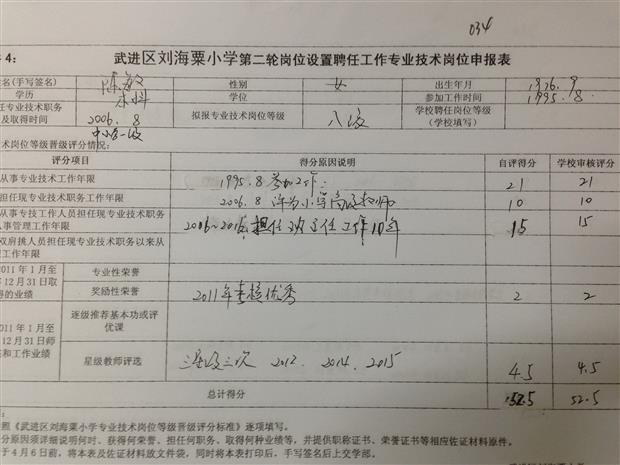 034
4：
武进区刘海粟小学第二轮岗位设置聘任工作专业技术岗位申报表
名(手写签名) 陈敏 性别 女 出生年月 1976.9
学历 本科 学位 参加工作时间 1995.8
任专业技术职务及取得时间 2006.8 中小学一级 拟报专业技术岗位等级 八级 学校聘任岗位等级(学校填写)
术岗位等级晋级评分情况：
评分项目 得分原因说明 自评得分 学校审核评分
从事专业技术工作年限 1995.8 参加工作 21 21
担任现专业技术职务工作年限 2006.8 评为小学高级教师 10 10
从事专技工作人员担任现专业技术职务
从事管理工作年限 2006~2015 担任班主任工作10年 15 15
双肩挑人员担任现专业技术职务以来从
理工作年限
2011年1月至 专业性荣誉
年12月31日取
得的业绩 奖励性荣誉 2011年考核优秀 2 2
逐级推荐基本功或评优课
2011年1月至
12月31日师
和工作业绩 星级教师评选 三星级三次 2012. 2014. 2015 4.5 4.5
总计得分 52.5 52.5
：
照《武进区刘海粟小学专业技术岗位等级晋级评分标准》逐项填写。
分原因须详细说明何时、获得何荣誉、担任何职务、取得何种业绩等，并提供职称证书、荣誉证书等相应佐证材料原件。
于4月6日前，将本表及佐证材料放文件袋，同时将本表打印后，手写签名后上交学部。